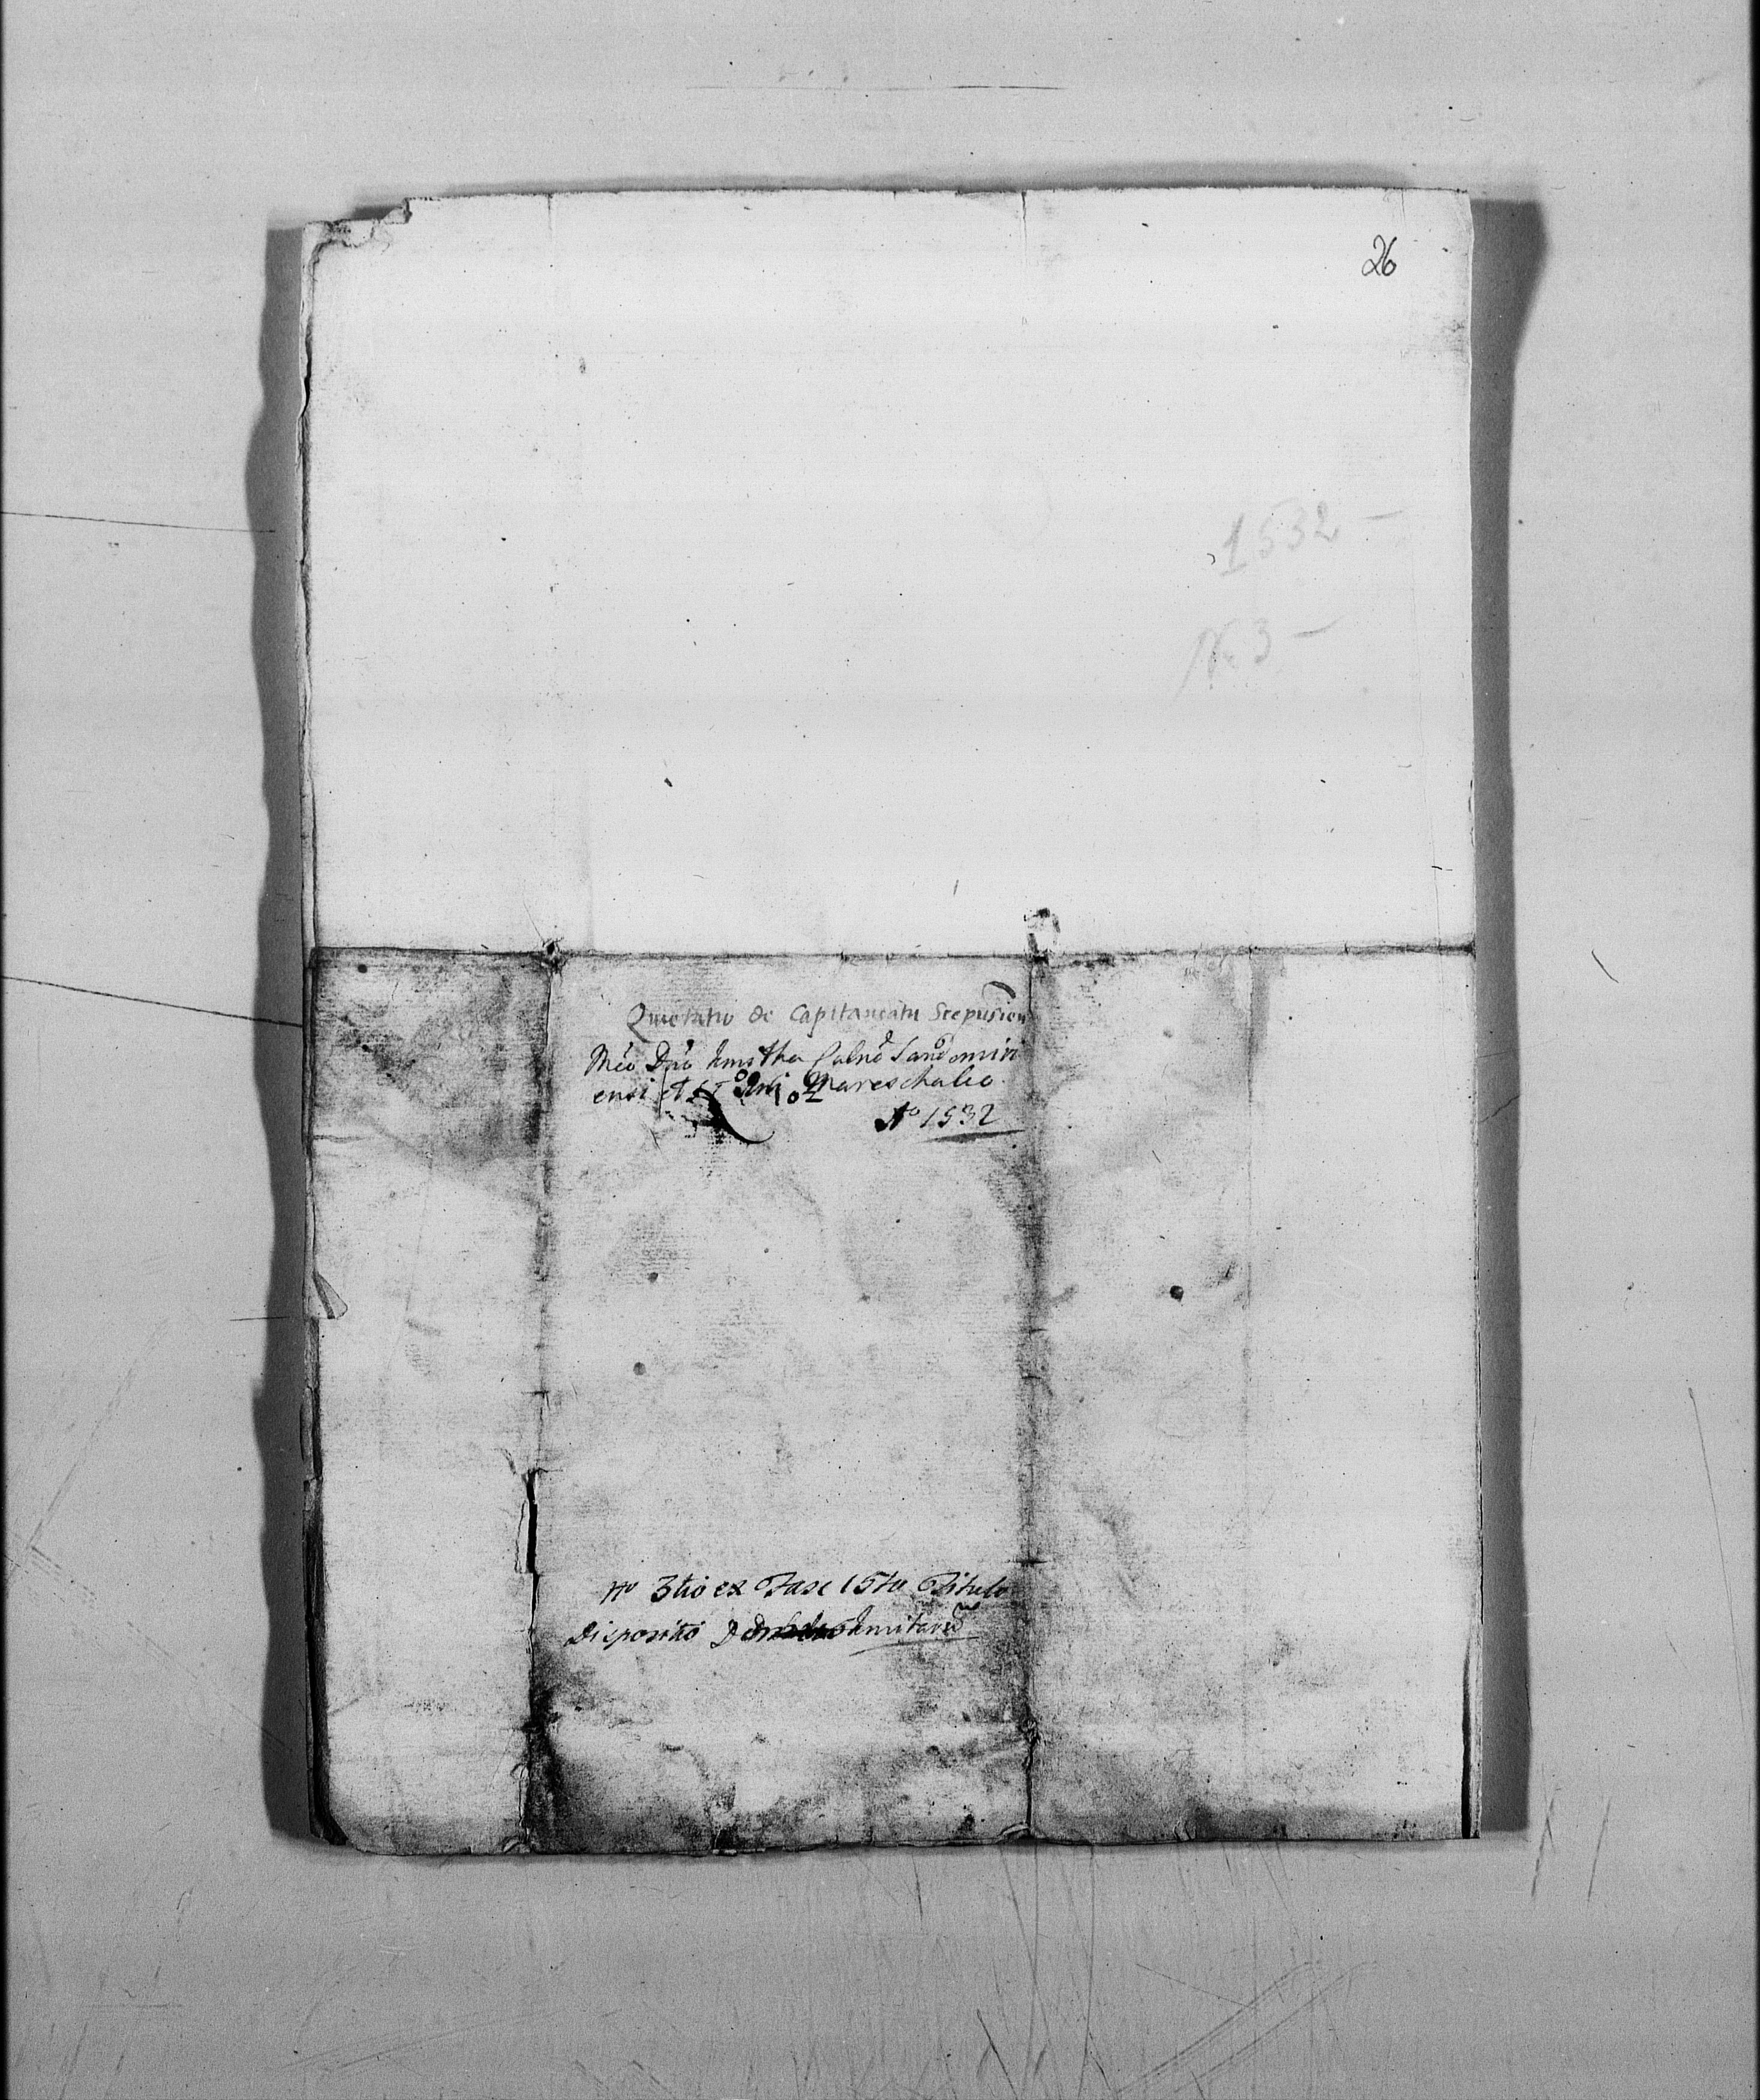 26
1532 —
No 3 —
Quietatio de Capitaneatu Scepusien
Mco Dno Kmitha Palno Sandomiri
ensi et Mareschalco.
Ao 1532
No 3tio ex Fasc 15to Titulo
Disposito Kmitarũ